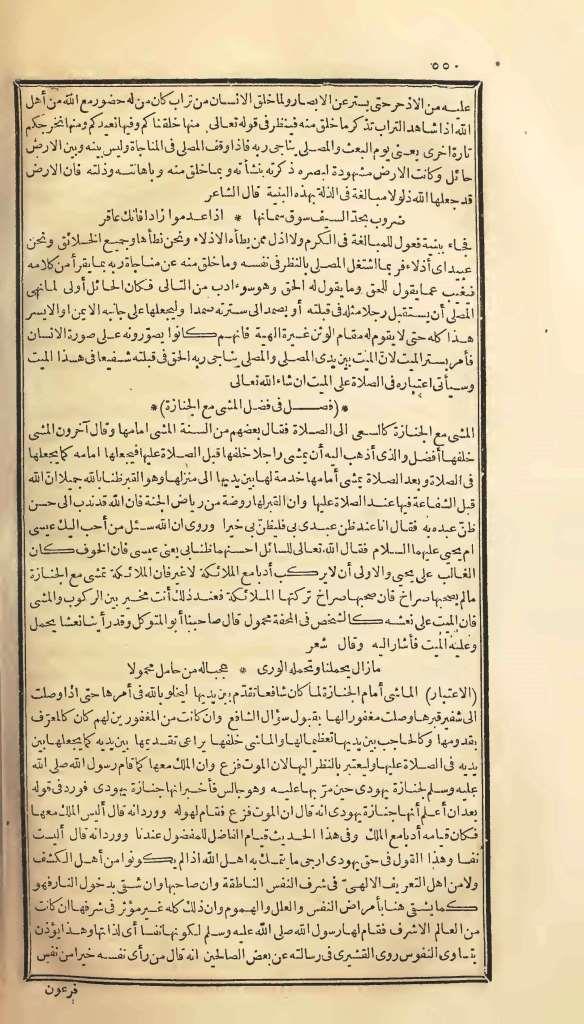 ٥٥٠
عليه من الاذخر حتى يستر عن الابصار ولما خلق الانسان من تراب كان من له حضور مع الله من أهل
الله اذا شاهد التراب تذكر ما خلق منه فينظر فى قوله تعالى منها خلقناكم وفيها نعيدكم ومنها نخرجكم
تارة اخرى يعنى يوم البعث والمصلى يناجى ربه فاذا وقف المصلى فى المناجاة وليس بينه وبين الارض
حائل وكانت الارض مشهودة لبصره ذكرته بنشأته وبما خلق منه وباهانته وذلته فان الارض
قد جعلها الله ذلولا مبالغة فى الذلة بهذه البنية قال الشاعر
ضروب بحد السيف سوق سمانها * اذا عدموا زادا فانك عاقر
فجاء ببنية فعول للمبالغة فى الكرم ولا اذل ممن يطأه الاذلاء ونحن نطأها وجميع الخلائق ونحن
عبيد اى أذلاء فربما اشتغل المصلى بالنظر فى نفسه وما خلق منه عن مناجاة ربه بما يقرأ من كلامه
فيغيب عما يقول للحق وما يقول له الحق وهو سوء ادب من التالى فكان الحائل أولى لما نهى
المصلى أن يستقبل رجلا مثله فى قبلته أو يصمد الى سترته صمدا وليجعلها على جانبه الايمن او الايسر
هذا كله حتى لا يقوم له مقام الوثن غيرة الهية فانهم كانوا يصورونه على صورة الانسان
فأمر بستر الميت لان الميت بين يدى المصلى والمصلى يناجى ربه الحق فى قبلته شفيعا فى هذا الميت
وسيأتى اعتباره فى الصلاة على الميت ان شاء الله تعالى
*(فصل فى فضل المشى مع الجنازة)*
المشى مع الجنازة كالسعى الى الصلاة فقال بعضهم من السنة المشى امامها وقال آخرون المشى
خلفها أفضل والذى أذهب اليه أن يمشى راجلا خلفها قبل الصلاة عليها فيجعلها امامه كما يجعلها
فى الصلاة وبعد الصلاة يمشى أمامها خدمة لها بين يديها الى منزلها وهو القبر ظنا بالله جميلا ان الله
قبل الشفاعة فيها عند الصلاة عليها وان القبر لها روضة من رياض الجنة فان الله قد ندب الى حسن
ظن عبده به فقال انا عند ظن عبدى بى فليظن بى خيرا وروى ان الله سئل من أحب اليك عيسى
ام يحيى عليهما السلام فقال الله تعالى للسائل احسنهما ظنا بى يعنى عيسى فان الخوف كان
الغالب على يحيى والاولى أن لا يركب أدبا مع الملائكة لا غير فان الملائكة تمشى مع الجنازة
مالم يصحبها صراخ فان صحبها صراخ تركتها الملائكة فعند ذلك أنت مخير بين الركوب والمشى
فان الميت على نعشه كالشخص فى المحفة محمول قال صاحبنا أبو المتوكل وقد رأينا نعشا يحمل
وعليه الميت فأشار اليه وقال شعر
مازال يحملنا وتحمله الورى * عجبا له من حامل محمولا
(الاعتبار) الماشى أمام الجنازة لما كان شافعا تقدم بين يديها ليخلو بالله فى أمرها حتى اذا وصلت
الى شفير قبرها وصلت مغفورا لها بقبول سؤال الشافع وان كانت من المغفورين لهم كان كالمعرف
بقدومها وكالحاجب بين يديها تعظيما لها والماشى خلفها يراعى تقديمها بين يديه كما يجعلها بين
يديه فى الصلاة عليها وليعتبر بالنظر اليها لان الموت فزع وان الملك معها كما قام رسول الله صلى الله
عليه وسلم لجنازة يهودى حين مر بها عليه وهو جالس فأخبر انها جنازة يهودى فورد فى قوله
بعد ان أعلم أنها جنازة يهودى انه قال ان الموت فزع فقام لهوله وورد انه قال أليس الملك معها
فكان قيامه أدبا مع الملك وفى هذا الحديث قيام الفاضل للمفضول عندنا وورد انه قال أليست
نفسا وهذا القول فى حق يهودى ارجى ما يتمسك به اهل الله اذا لم يكونوا من أهل الكشف
ولا من اهل التعريف الالهى فى شرف النفس الناطقة وان صاحبها وان شقى بدخول النار فهو
كما يشقى هنا بأمراض النفس والعلل والهموم وان ذلك كله غير مؤثر فى شرفها ان كانت
من العالم الاشرف فقام لها رسول الله صلى الله عليه وسلم لكونها نفسا أى لذاتها وهذا يؤذن
بتساوى النفوس روى القشيرى فى رسالته عن بعض الصالحين انه قال من رأى نفسه خيرا من نفس
فرعون